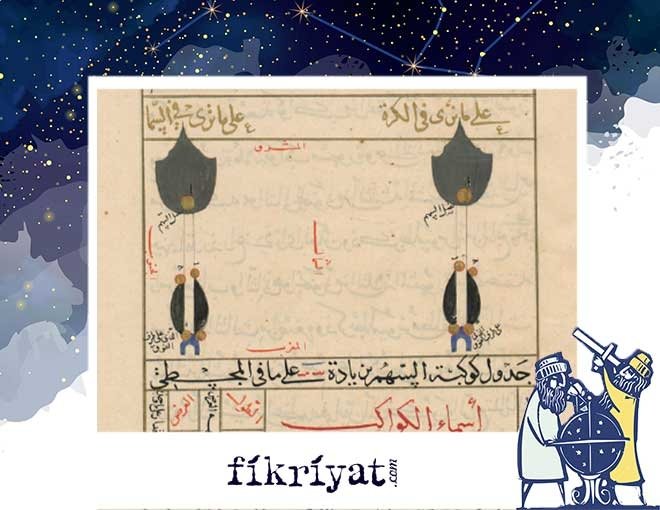 على ما ترى في الكرة
على ما ترى في السما
المشرق
الجنوب
المغرب
جدول كوكبة السهم بزيادة على ما في المجسطي
أسماء الكواكب
الطول
العرض
fikriyat.com